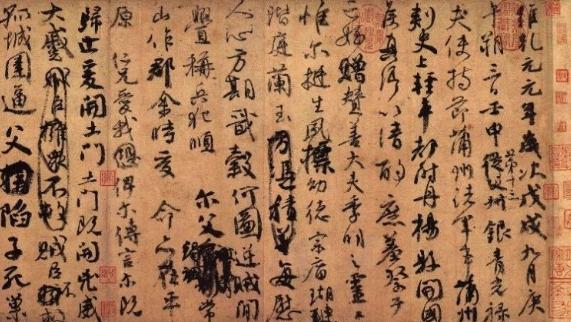 維乾元元年歲次戊戌九月庚
午朔三日壬申第十三從父銀青光祿
夫使持節蒲州諸軍事蒲州
刺史上輕車都尉丹楊縣開國
侯真卿以清酌庶羞祭于
亡姪贈贊善大夫季明之靈曰
惟爾挺生夙標幼德宗廟瑚璉
階庭蘭玉方憑積善每慰
人心方期戩穀何圖逆賊間
釁稱兵犯順爾父竭誠常
山作郡余時受命亦在平
原仁兄愛我俾爾傳言爾既
歸止爰開土門土門既開凶威
大蹙賊臣擁眾不救賊臣不
孤城圍逼父陷子死巢